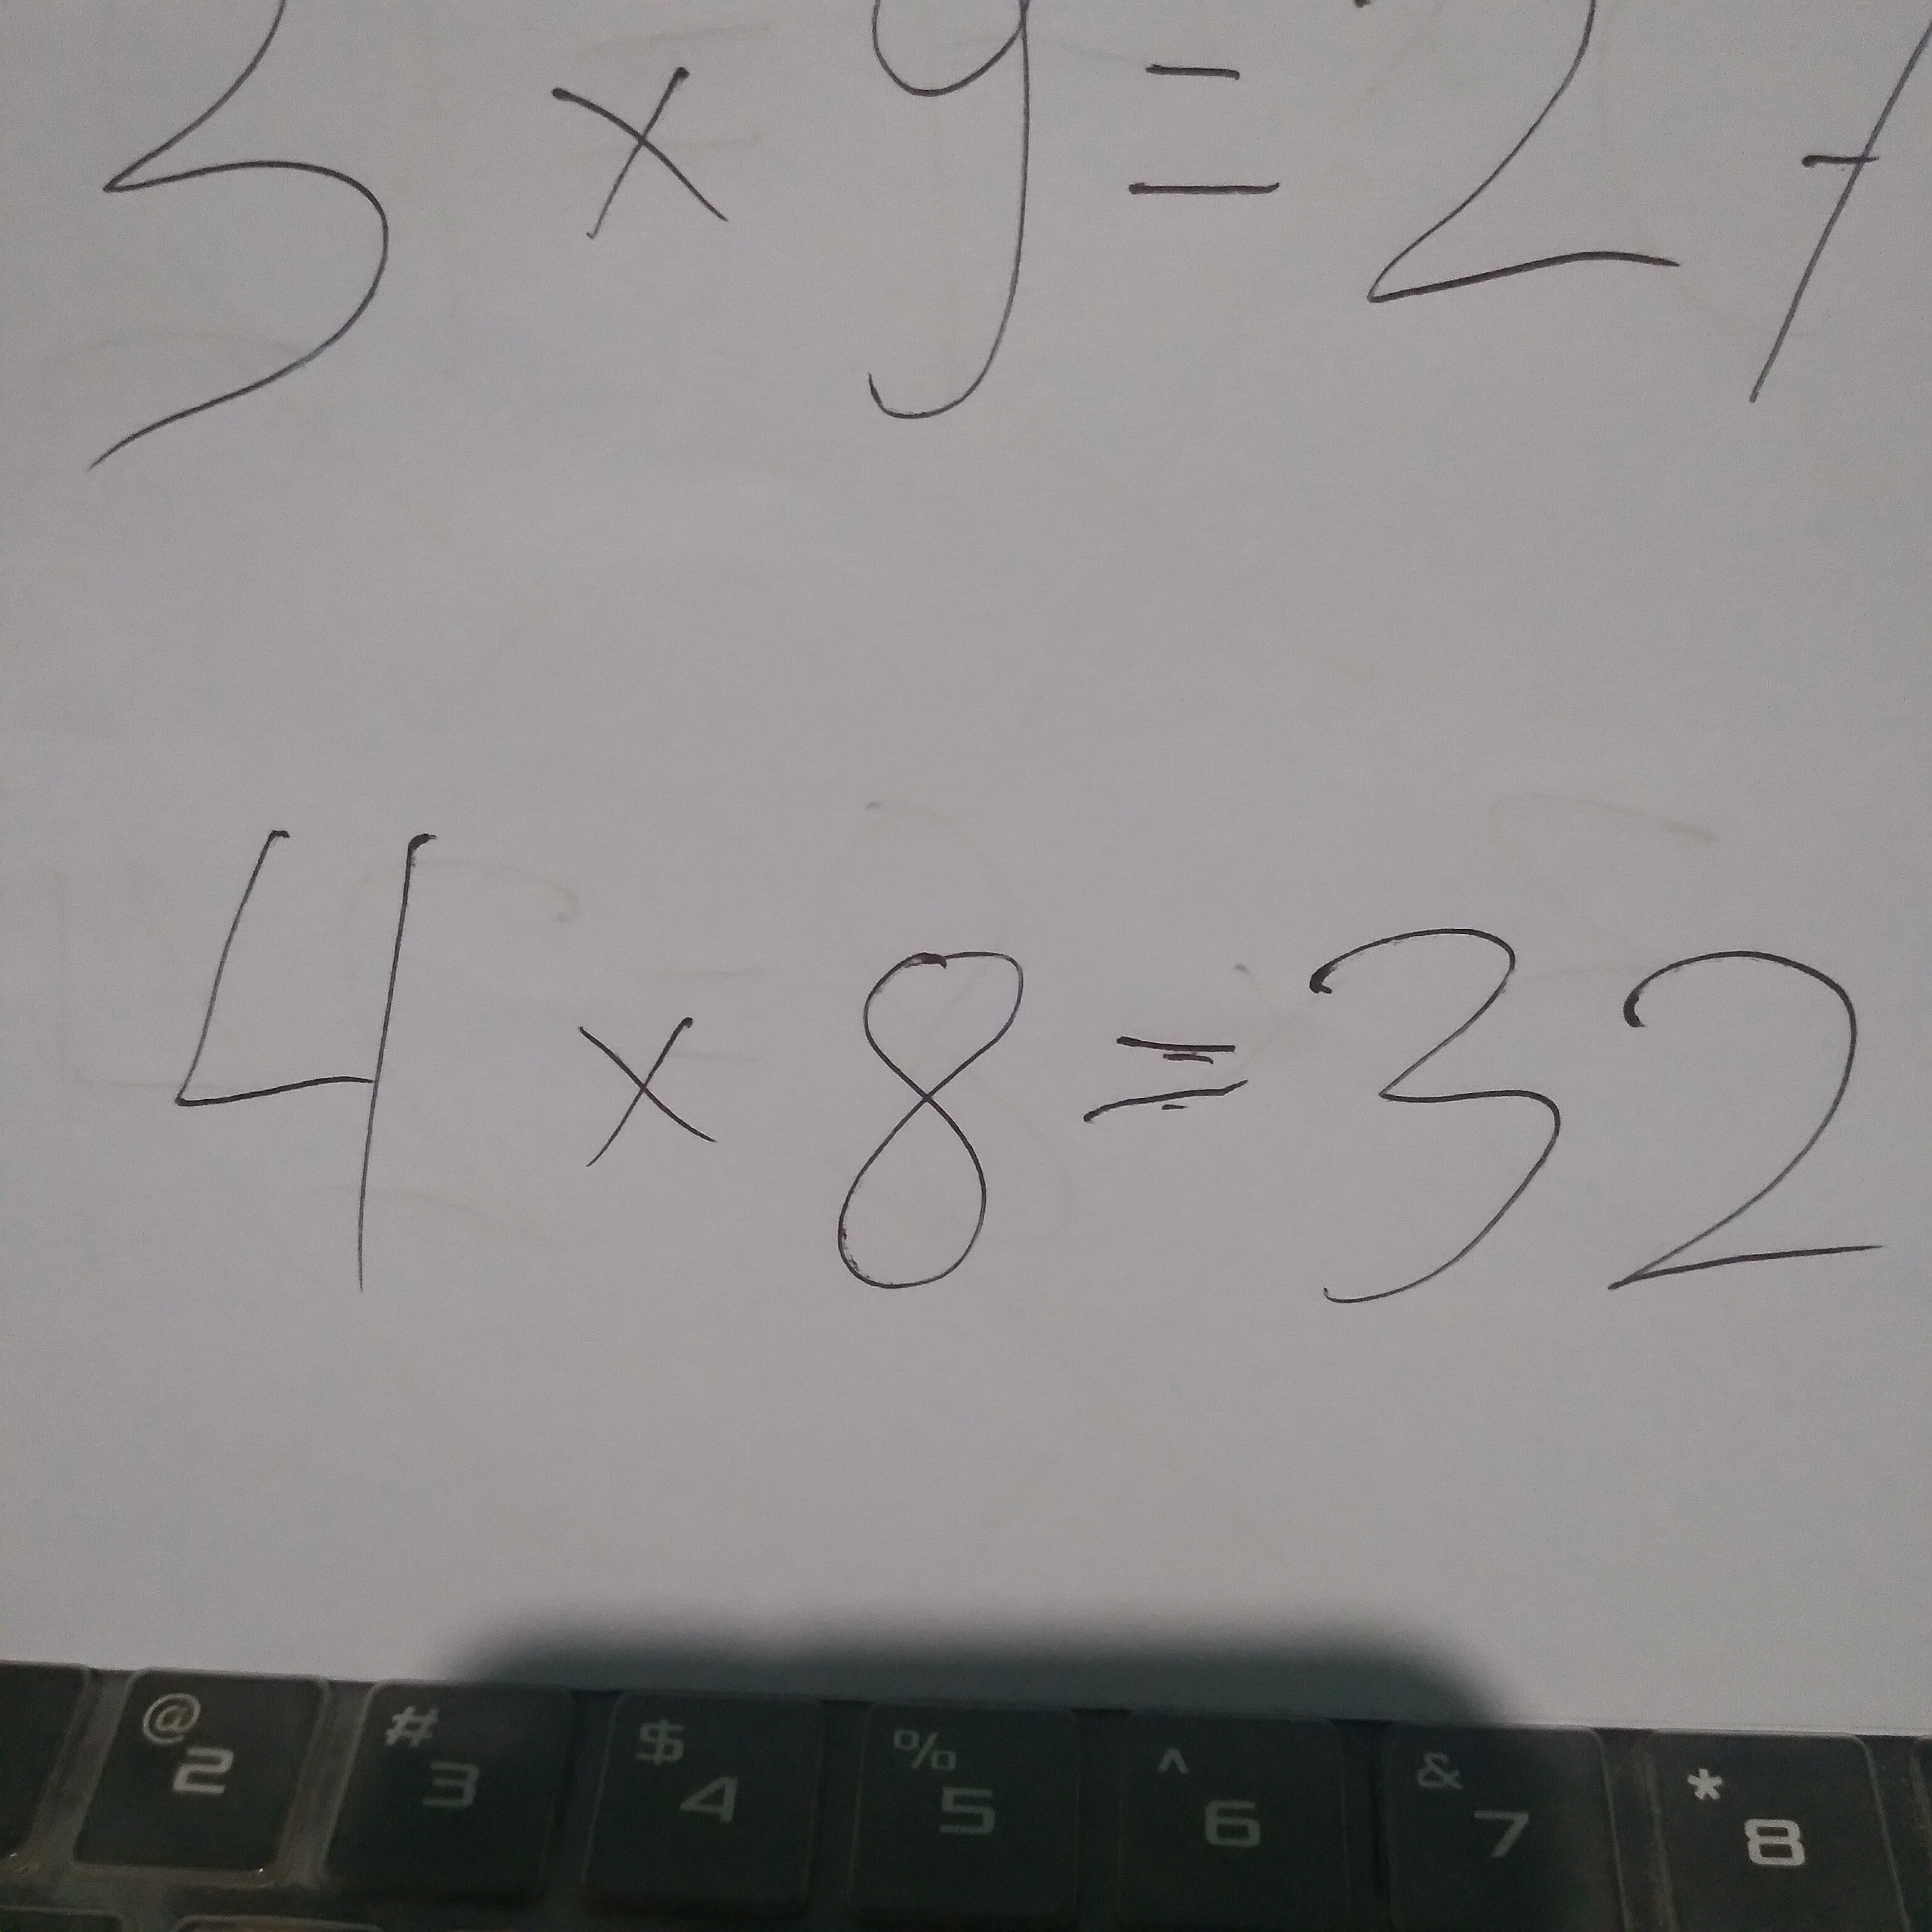 3 × 9 = 27
4 × 8 = 32
@ # $ % ^ & *
2 3 4 5 6 7 8